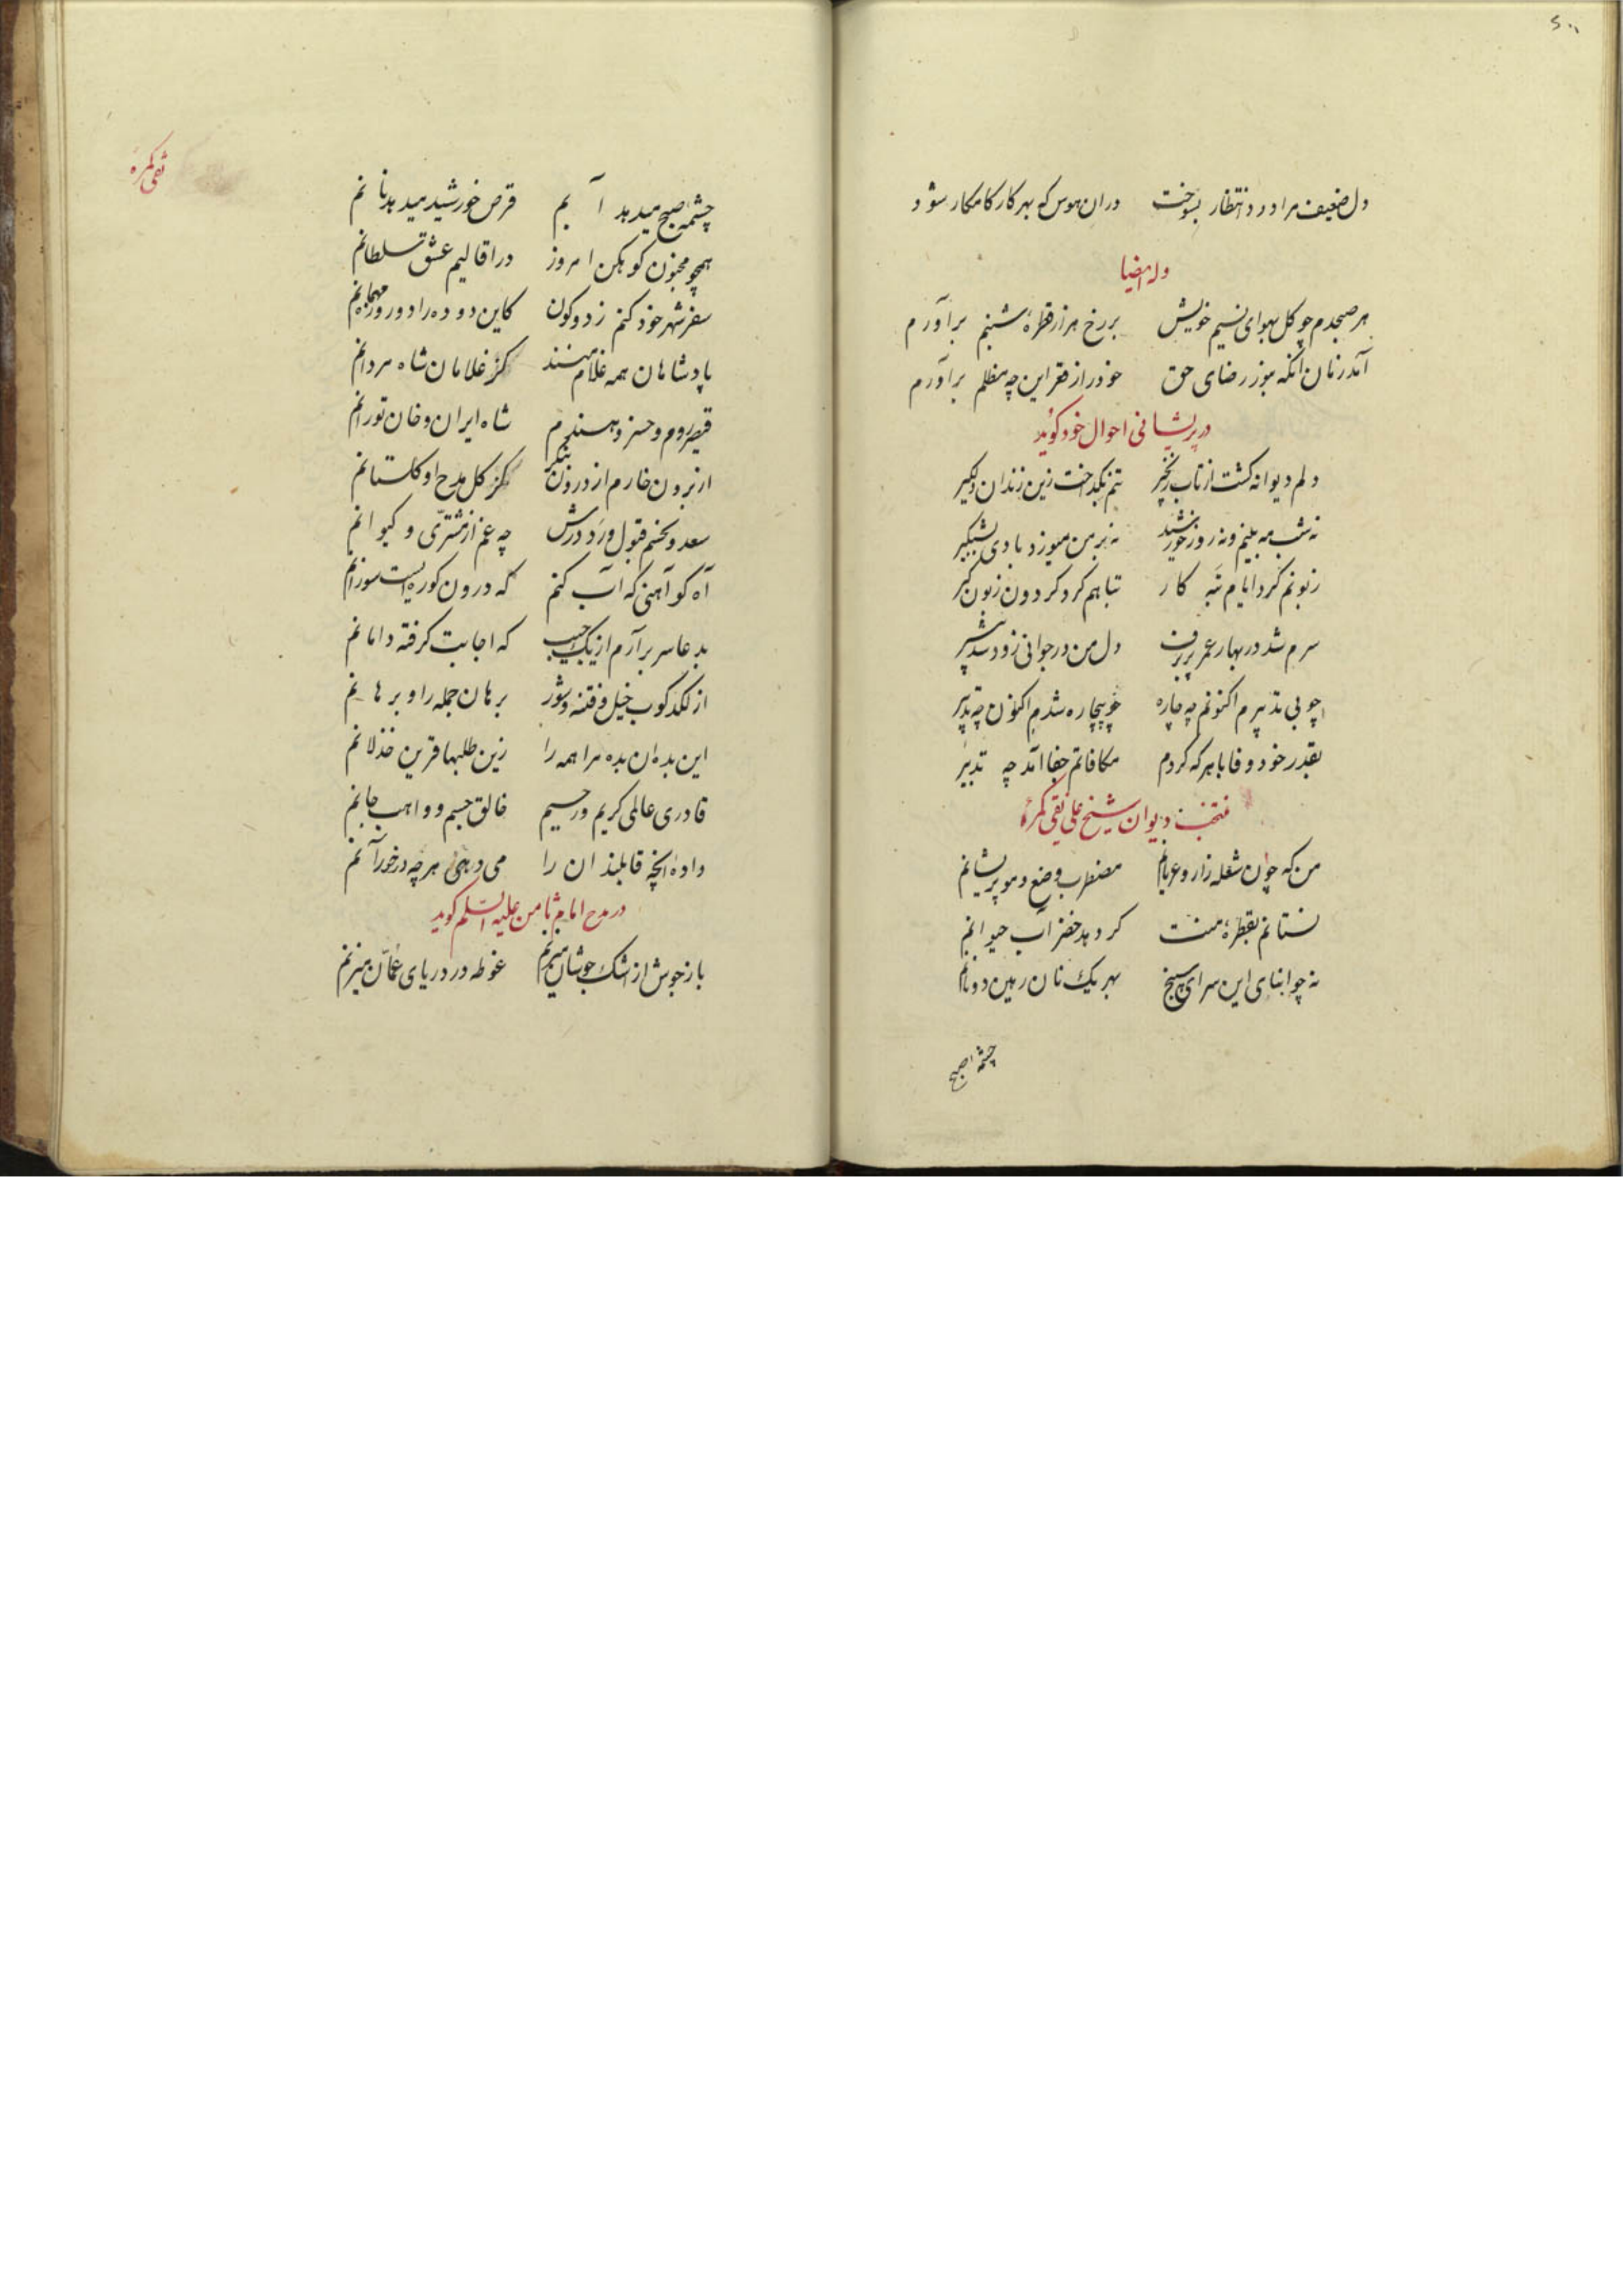 دل ضعیف مرا درد انتظار بسوخت دران هوس که بهر کار کامکار شود
وله ایضا
هر صبحدم چو کل بهوای نسیم خویش بر رخ هزار قطرهٔ شبنم برآورم
خود را از قعر این چه مظلم برآورم
در پریشانی احوال خود کوید
دلم دیوانه کشت از تاب زنجیر تنم بکداخت زین زندان دلکیر
نه شب مه بینم و نه روز خورشید نه بر من میوزد بادی بشبکیر
زبونم کرد ایام تبه کار تباهم کرد کردون زبون کیر
سرم شد در بهار عمر پر برف دل من در جوانی زود شد پیر
چو بی تدبیرم اکنونم چه چاره چو بیچاره شدم اکنون چه تدبیر
بقدر خود وفا با هر که کردم مکافاتم جفا آمد چه تدبیر
منتخب دیوان شیخ علی نقی کمره
من که چون شعله زار و عریانم مضطرب وضع و مو پریشانم
نستانم بقطرهٔ منت کر دهد خضر آب حیوانم
نه چو ابنای این سرای سپنج بهر یک نان رهین دونانم
چشمه صبح
نقی کمره
چشمه صبح میدهد آبم قرص خورشید میدهد نانم
همچو مجنون کوهکن امروز در اقالیم عشق سلطانم
سفر شهر خود کنم ز دو کون کاین دو ده را دو روز مهمانم
پادشاهان همه غلام منند کز غلامان شاه مردانم
قیصر روم و خسرو هندم شاه ایران و خان تورانم
از برون خارم از درون بنکر کز کل مدح او کلستانم
سعد و نحسم قبول و رد درش چه غم از مشتری و کیوانم
آه کو آهنی که آب کنم که درون کوره‌ایست سوزانم
بدعا سر برآرم از یک جیب که اجابت کرفته دامانم
از لکدکوب خیل فتنه و شور برهان جمله را و برهانم
این بده آن بده مرا همه را زین طلبها قرین خذلانم
قادری عالمی کریم و رحیم خالق جسم و واهب جانم
دادهٔ آنچه قابلند آن را می دهی هر چه در خور آنم
در مدح امام ثامن علیه السلم کوید
باز جوش از اشک جوشان میزنم غوطه در دریای عمان میزنم